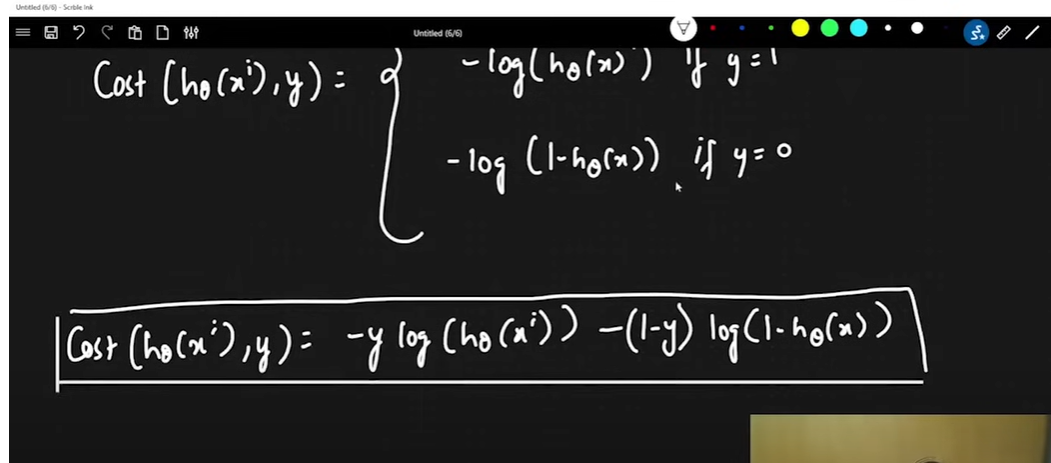 Untitled (6/6) - Scrble Ink
Untitled (6/6)
Cost (hθ(xⁱ), y) = { -log(hθ(x)) if y=1
-log (1-hθ(x)) if y=0
Cost (hθ(xⁱ), y) = -y log (hθ(xⁱ)) -(1-y) log(1-hθ(x))